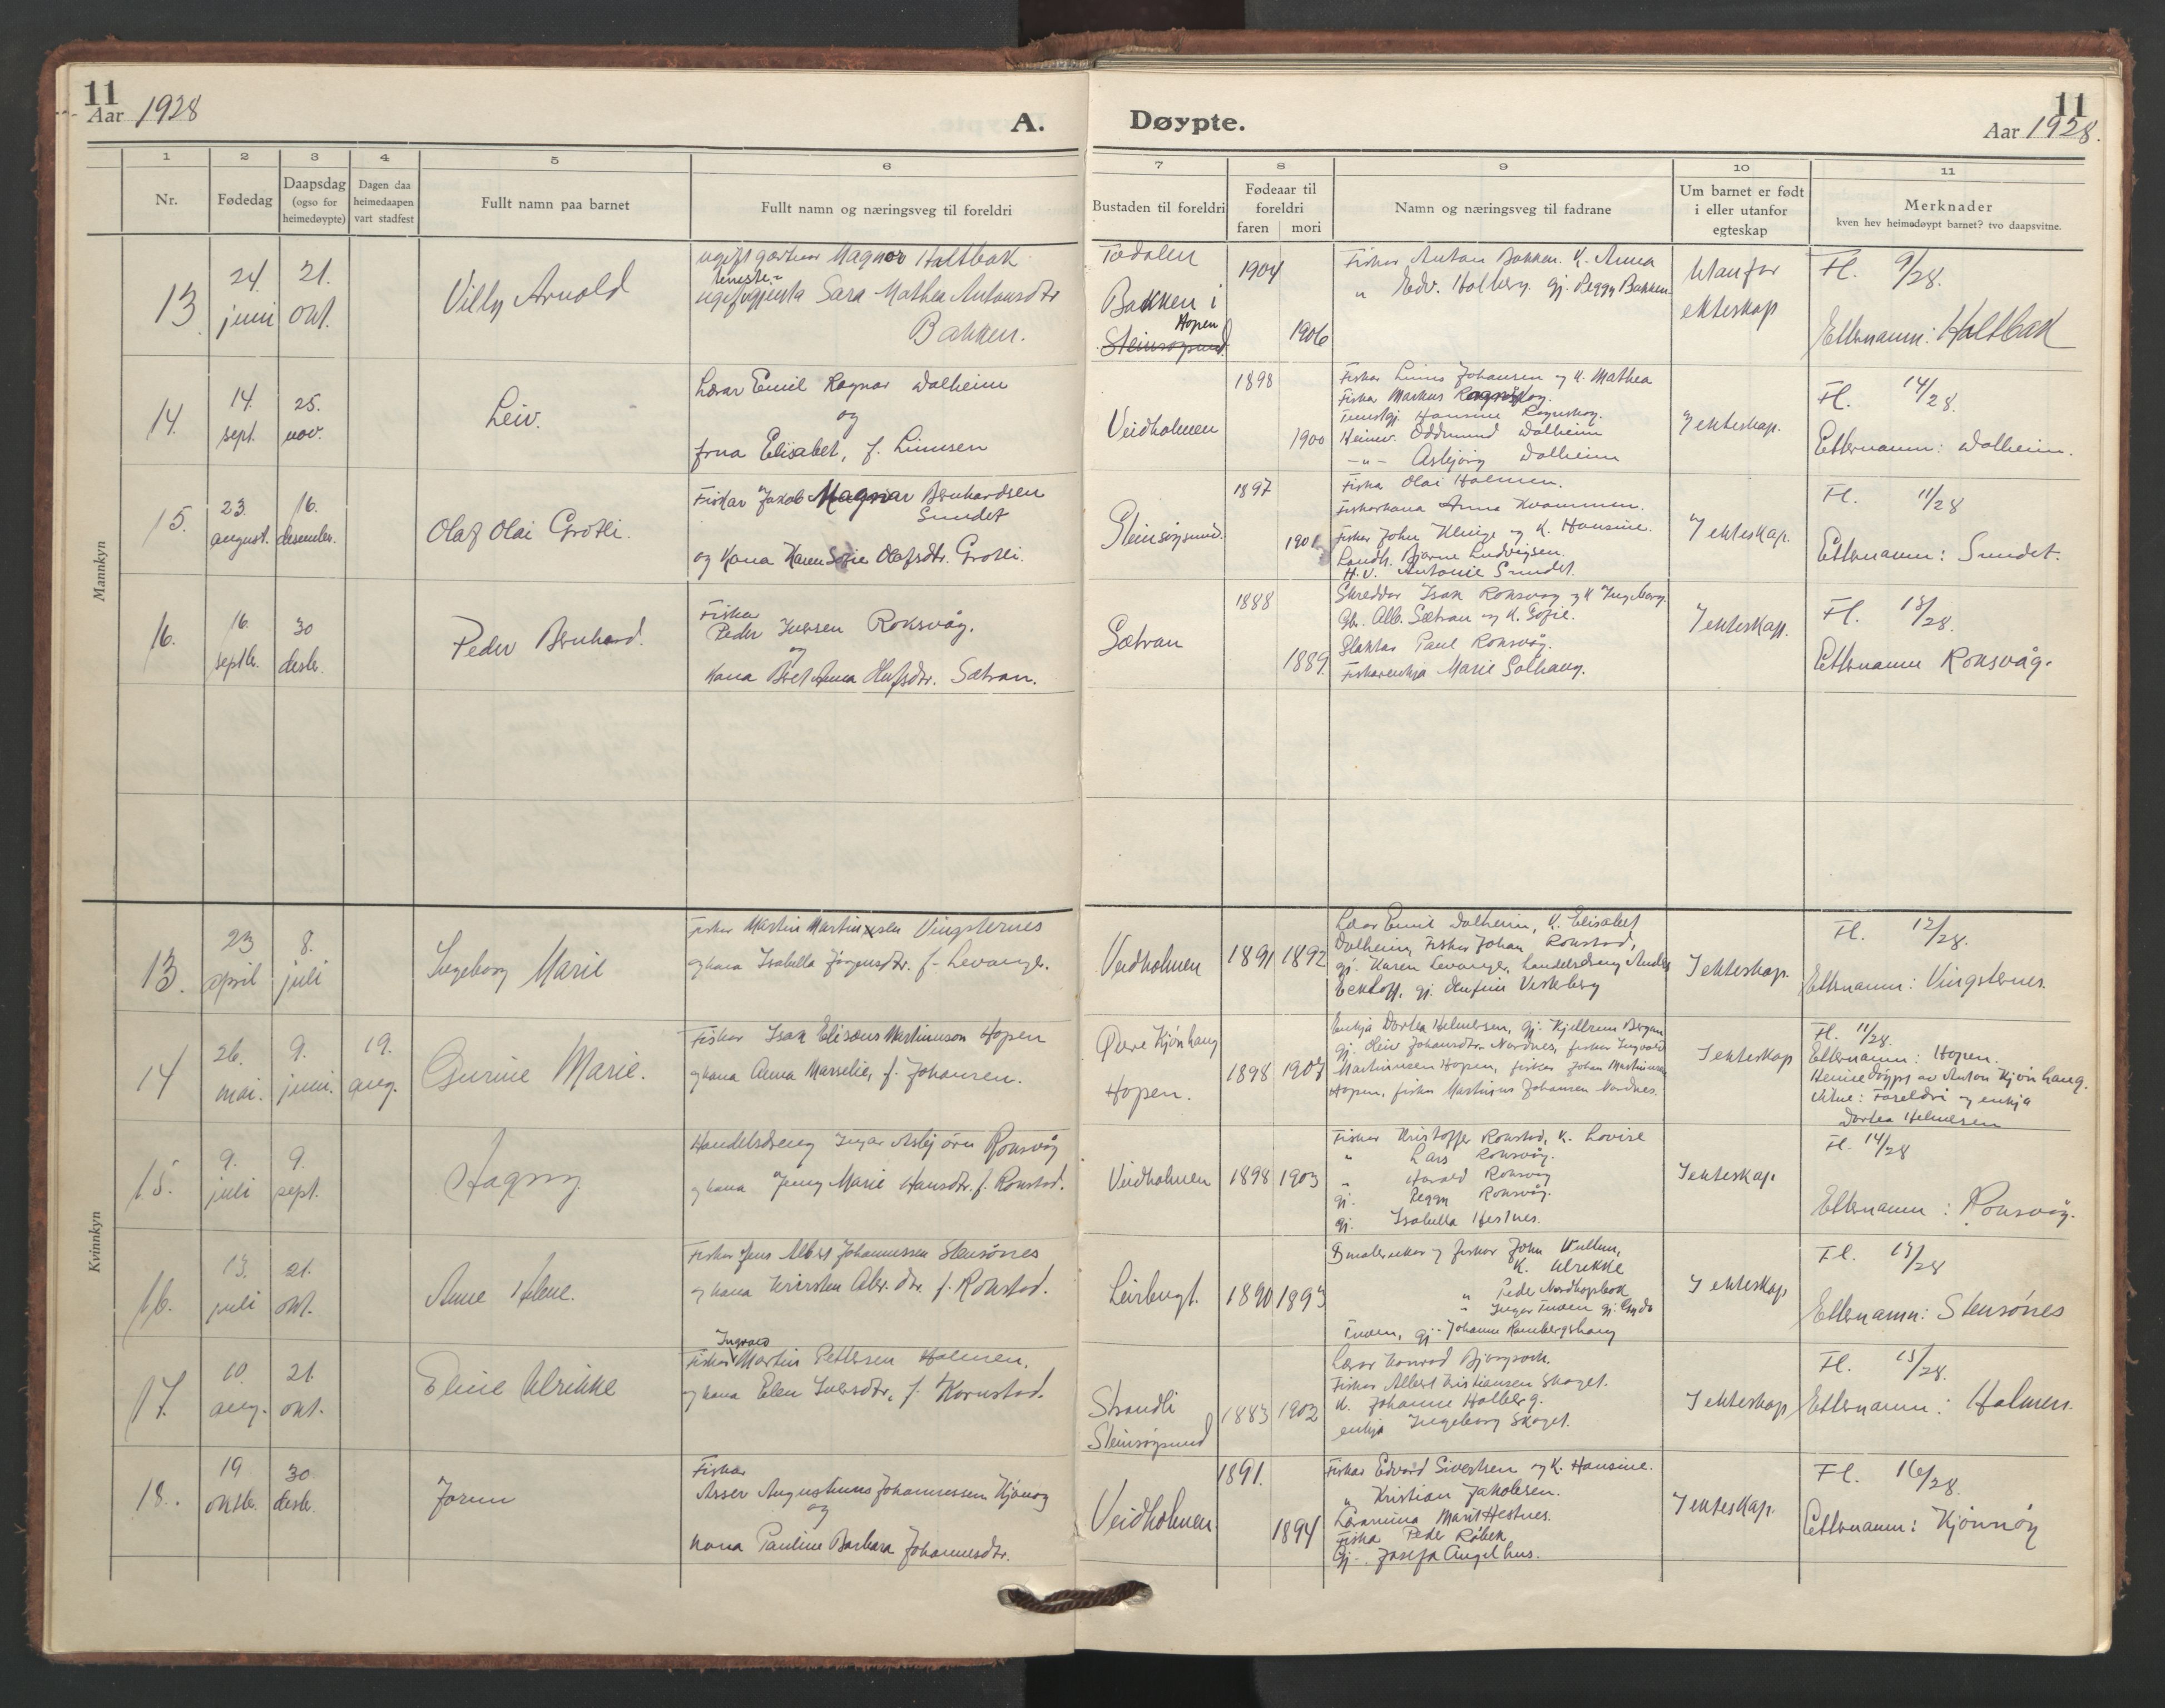 11
Aar 1928
A.
Døypte.
11
Aar 1928.
1 2 3 4 5 6 7 8 9 10 11
Nr.
Fødedag
Daapsdag
(ogso for
heimedøypte)
Dagen daa
heimedaapen
vart stadfest
Fullt namn paa barnet
Fullt namn og næringsveg til foreldri
Bustaden til foreldri
Fødeaar til
foreldri
faren mori
Namn og næringsveg til fadrane
Um barnet er født
i eller utanfor
egteskap
Merknader
kven hev heimedøypt barnet? tvo daapsvitne.
Mannkyn
13.
24. juni
21. okt.
Villy Arnold
ugift Magnor Holtbak
Sara Mathea Antonsdtr
Bakken.
Todalen
Bakken i
Hopen
Steinsøysund.
1904
1906
Fiskar Anton Bakken. K. Anna
" Edv. Holberg. gj. Peggy Bakken
Utanfor
ekteskap
Fl. 9/28.
Etternamn: Holtbak
14.
14. sept.
25. nov.
Leiv.
Lærar Emil Ragnar Dalheim
og
frua Elisabet, f. Linusen
Veidholmen
1898
1900
Fiskar Linus Johansen og K. Mathea
Fiskar Markus
Hansine Rognskog.
Heimev. Oddmund Dalheim
-"- Asbjørg Dalheim
I ekteskap.
Fl. 14/28.
Etternamn: Dalheim.
15.
23. august.
16. desember.
Olaf Olai Grøtli.
Fiskar Jakob Magnar Bernhardsen
Sundet
og kona Karen Sofie Olafsdtr. Grøtli.
Steinsøysund.
1897
1901
Fiska Olai Holmen.
Fiskarkona Anna Kvammen.
Fiskar John Klinge og K. Hansine.
Landh. Bjarne Ludvigsen.
H.v. Antonie Sundet.
I ekteskap.
Fl. 11/28
Etternamn: Sundet.
16.
16. septbr.
30 desbr.
Peder Bernhard.
Fiskar
Peder Iversen Roksvåg.
og
kona Beret Anna Olufsdtr. Sætran.
Sætran
1888
1889.
Skreddar Isak Roksvåg og K Ingeborg.
Gbr. Alb. Sætran og K. Sofie.
Slaktar Paul Roksvåg.
Fiskarenkja Marie Solhaug.
I ekteskap.
Fl. 13/28.
Etternamn Roksvåg.
Kvinnkyn
13.
23 april
8. juli
Ingeborg Marie
Fiskar Martin Martinsen Vingsternes
og kona Isabella Jørgensdtr. f. Levanger.
Veidholmen
1891 1892
Lærar Emil Dalheim, K. Elisabet
Dalheim, Fiskar Johan Rokstad,
gj. Karen Levanger, handelsdreng Anders
Eckhoff, gj. Veskberg
I ekteskap.
Fl. 12/28.
Etternamn: Vingsternes.
14
26. mai.
9. juni.
19. aug.
Gurine Marie.
Fiskar Isak Elisæus Martinusson Hopen
og kona Anna Marselie, f. Johansen.
Øvre Kjønhaug
Hopen.
1898 1907
Enkja Dortea Helmersen, gj. Kjellrun Bergum
gj. Johansdtr. Nordnes, fiskar Ingvald
Martinusen Hopen, fiskar Johan Martinusen
Hopen, fiskar Martinus Johansen Nordnes.
I ekteskap
Fl. 11/28.
Etternamn: Hopen.
Heimedøypt av Anton Kjønhaug.
Vitne: Foreldri og enkja
Dortea Helmersen
15.
9. juli
9. sept.
Hagny
Handelsdreng Ingar Asbjørn Roksvåg
og kona Jenny Marie Hansdtr. f. Rokstad.
Veidholmen
1898 1903
Fiskar Kristoffer Rokstad, K. Lovise
" Lars Roksvåg.
" Harald Roksvåg
gj. Peggy Roksvåg.
gj. Isabella Hestnes.
I ekteskap.
Fl. 14/28
Etternamn: Roksvåg.
16.
13. juli
21. okt.
Anne Helene.
Fiskar Jens Albert Johannessen Stensønes
og kona Kirsten Abr. dtr. f. Rokstad.
Leirbugt.
1890 1893
Smabrukar og fiskar John Wullum,
K. Ulrikke
" Peder Nordhopbak
" Ingar Tuven gj. Gyda
Tuven, gj. Johanna Rambergshaug
I ekteskap
Fl. 17/28
Etternamn: Stensønes
17.
10. aug.
21. okt.
Eline Ulrikke
Ingvald
Fiskar Martin Pettersen Holmen.
og kona Elen Iversdtr. f. Kornstad.
Strandli
Steinsøysund
1883 1902
Lærar Konrad
Fiskar Albert Kristiansen Skaget.
K. Johanne Holberg.
enkja Ingeborg Skaget.
I ekteskap
Fl. 15/28.
Etternamn: Holmen.
18.
19 oktbr.
30 desbr.
Jorun
Fiskar
Asser Augustinus Johannessen Kjønøy
og
kona Pauline Barbara Johannesdtr.
Veidholmen
1891.
1894
Fiskar Edvard Sivertsen og K. Hansine.
" Kristian Jakobsen.
Lærarinna Marit Hestnes.
Fiskar Peder Røbek
Gj. Josefa Angelhus.
I ekteskap.
Fl. 16/28.
Etternamn: Kjønnøy